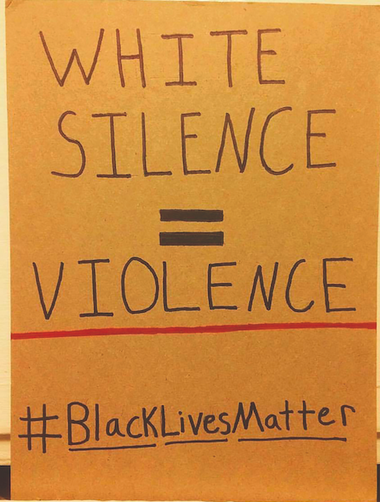 WHITE
SILENCE
=
VIOLENCE
#BlackLivesMatter